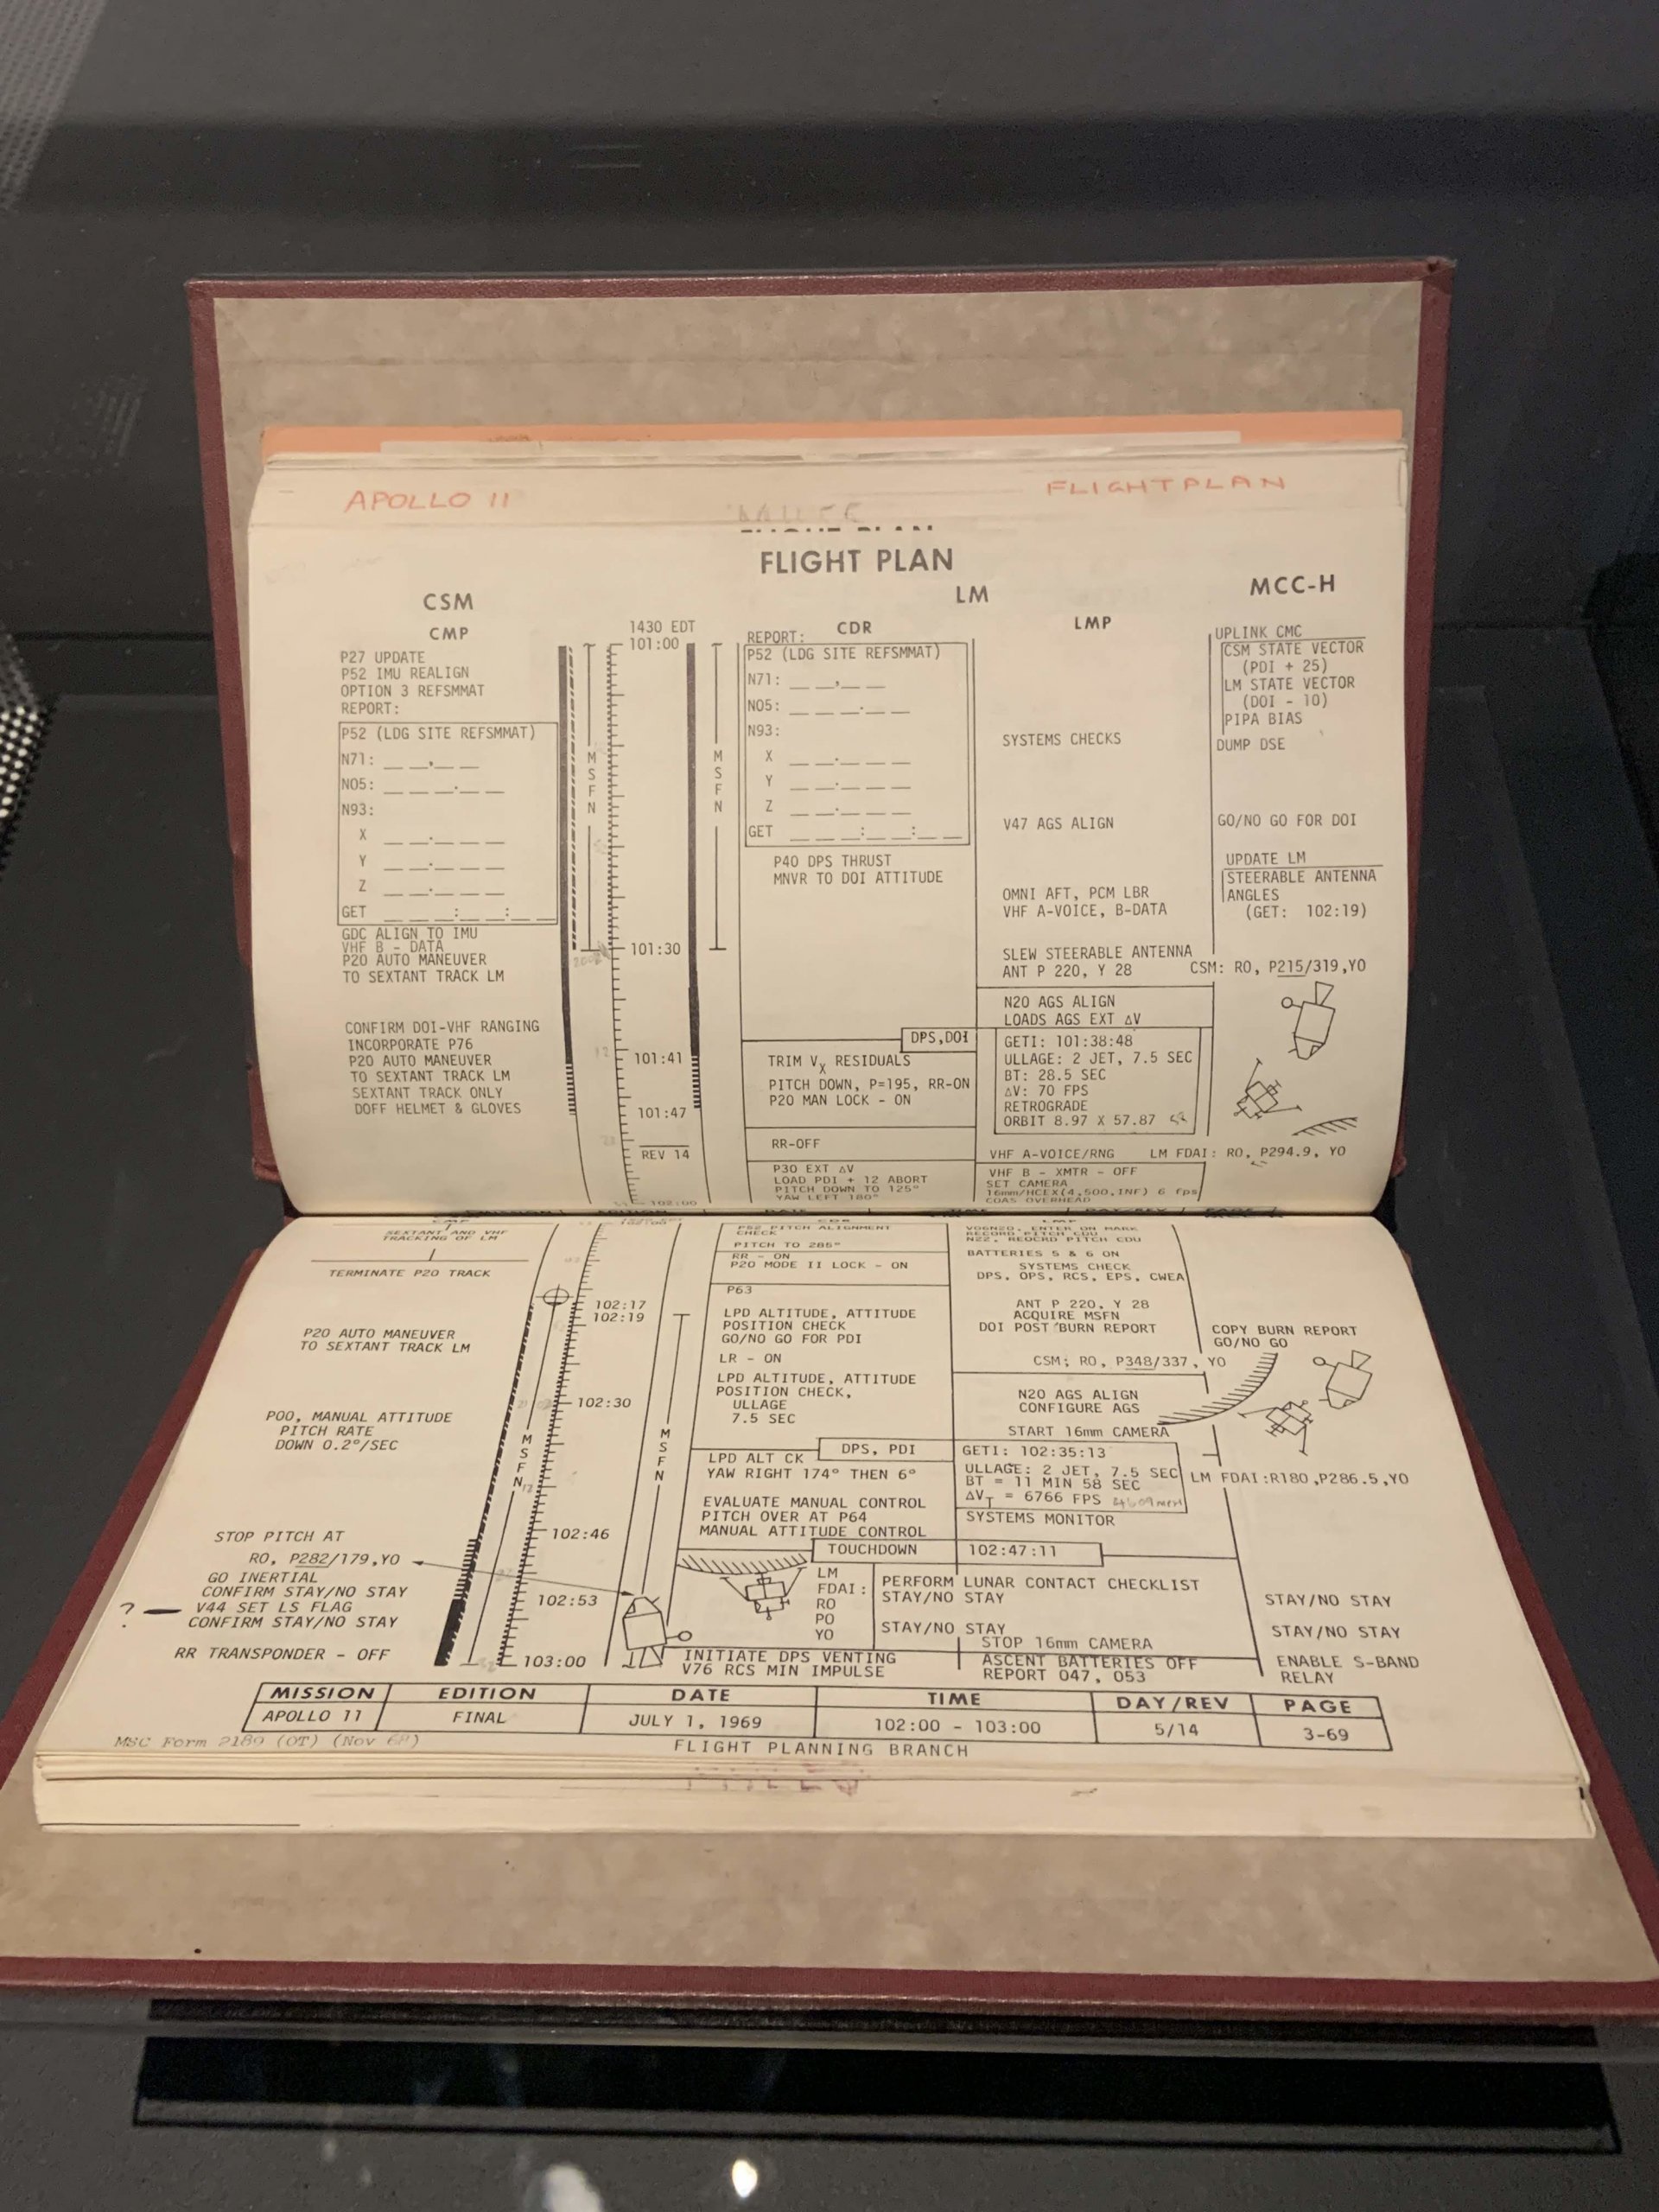 APOLLO 11
FLIGHTPLAN
FLIGHT PLAN
CSM
LM
MCC-H
CMP
P27 UPDATE
P52 IMU REALIGN
OPTION 3 REFSMMAT
REPORT:
P52 (LDG SITE REFSMMAT)
N71: __ __,__ __
N05: __ __ __.__ __
N93:
X __ __.__ __ __
Y __ __.__ __ __
Z __ __.__ __ __
GET __ __ __:__ __:__ __
GDC ALIGN TO IMU
VHF B - DATA
P20 AUTO MANEUVER
TO SEXTANT TRACK LM
CONFIRM DOI-VHF RANGING
INCORPORATE P76
P20 AUTO MANEUVER
TO SEXTANT TRACK LM
SEXTANT TRACK ONLY
DOFF HELMET & GLOVES
1430 EDT
101:00
MSFN
MSFN
101:30
101:41
101:47
REV 14
102:00
CDR
REPORT:
P52 (LDG SITE REFSMMAT)
N71: __ __,__ __
N05: __ __ __.__ __
N93:
X __ __.__ __ __
Y __ __.__ __ __
Z __ __.__ __ __
GET __ __ __:__ __:__ __
P40 DPS THRUST
MNVR TO DOI ATTITUDE
DPS,DOI
TRIM VX RESIDUALS
PITCH DOWN, P=195, RR-ON
P20 MAN LOCK - ON
RR-OFF
P30 EXT ΔV
LOAD PDI + 12 ABORT
PITCH DOWN TO 125°
YAW LEFT 180°
LMP
SYSTEMS CHECKS
V47 AGS ALIGN
OMNI AFT, PCM LBR
VHF A-VOICE, B-DATA
SLEW STEERABLE ANTENNA
ANT P 220, Y 28
N20 AGS ALIGN
LOADS AGS EXT ΔV
GETI: 101:38:48
ULLAGE: 2 JET, 7.5 SEC
BT: 28.5 SEC
ΔV: 70 FPS
RETROGRADE
ORBIT 8.97 X 57.87
VHF A-VOICE/RNG
VHF B - XMTR - OFF
SET CAMERA
16mm/HCEX(4,500,INF) 6 fps
COAS OVERHEAD
UPLINK CMC
CSM STATE VECTOR
(PDI + 25)
LM STATE VECTOR
(DOI - 10)
PIPA BIAS
DUMP DSE
GO/NO GO FOR DOI
UPDATE LM
STEERABLE ANTENNA
ANGLES
(GET: 102:19)
CSM: RO, P215/319,YO
LM FDAI: RO, P294.9, YO
SEXTANT AND VHF
TRACKING OF LM
TERMINATE P20 TRACK
P20 AUTO MANEUVER
TO SEXTANT TRACK LM
P00, MANUAL ATTITUDE
PITCH RATE
DOWN 0.2°/SEC
STOP PITCH AT
RO, P282/179,YO
GO INERTIAL
CONFIRM STAY/NO STAY
? — V44 SET LS FLAG
CONFIRM STAY/NO STAY
RR TRANSPONDER - OFF
102:17
102:19
102:30
MSFN
MSFN
102:46
102:53
103:00
P52 PITCH ALIGNMENT
CHECK
PITCH TO 285°
RR - ON
P20 MODE II LOCK - ON
P63
LPD ALTITUDE, ATTITUDE
POSITION CHECK
GO/NO GO FOR PDI
LR - ON
LPD ALTITUDE, ATTITUDE
POSITION CHECK,
ULLAGE
7.5 SEC
DPS, PDI
LPD ALT CK
YAW RIGHT 174° THEN 6°
EVALUATE MANUAL CONTROL
PITCH OVER AT P64
MANUAL ATTITUDE CONTROL
TOUCHDOWN
102:47:11
LM
FDAI:
RO
PO
YO
INITIATE DPS VENTING
V76 RCS MIN IMPULSE
V06N20, ENTER ON MARK
RECORD PITCH CDU
N22, REOCRD PITCH CDU
BATTERIES 5 & 6 ON
SYSTEMS CHECK
DPS, OPS, RCS, EPS, CWEA
ANT P 220, Y 28
ACQUIRE MSFN
DOI POST BURN REPORT
CSM; RO, P348/337, YO
N20 AGS ALIGN
CONFIGURE AGS
START 16mm CAMERA
GETI: 102:35:13
ULLAGE: 2 JET, 7.5 SEC
BT = 11 MIN 58 SEC
ΔVT = 6766 FPS
SYSTEMS MONITOR
PERFORM LUNAR CONTACT CHECKLIST
STAY/NO STAY
STAY/NO STAY
STOP 16mm CAMERA
ASCENT BATTERIES OFF
REPORT 047, 053
COPY BURN REPORT
GO/NO GO
LM FDAI:R180,P286.5,YO
STAY/NO STAY
STAY/NO STAY
ENABLE S-BAND
RELAY
MISSION EDITION DATE TIME DAY/REV PAGE
APOLLO 11 FINAL JULY 1, 1969 102:00 - 103:00 5/14 3-69
MSC Form 2189 (OT) (Nov 68)
FLIGHT PLANNING BRANCH